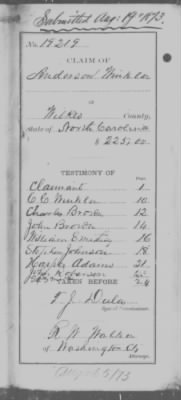 Submitted Aug: 19th 1873.
No. 19219
CLAIM OF
Anderson Winkler
of
Wilkes County,
State of North Carolina
$ 225.00
TESTIMONY OF
Page.
Claimant 1
C C Winkler 10
Charles Brown 12
John Brown 14
William Emitting 16
Stephen Johnson 18
Harper Adams 21
Roberson
TAKEN BEFORE 24
T. J. Dula
Special Commissioner.
R. W. Walker
of Washington City
Attorney.